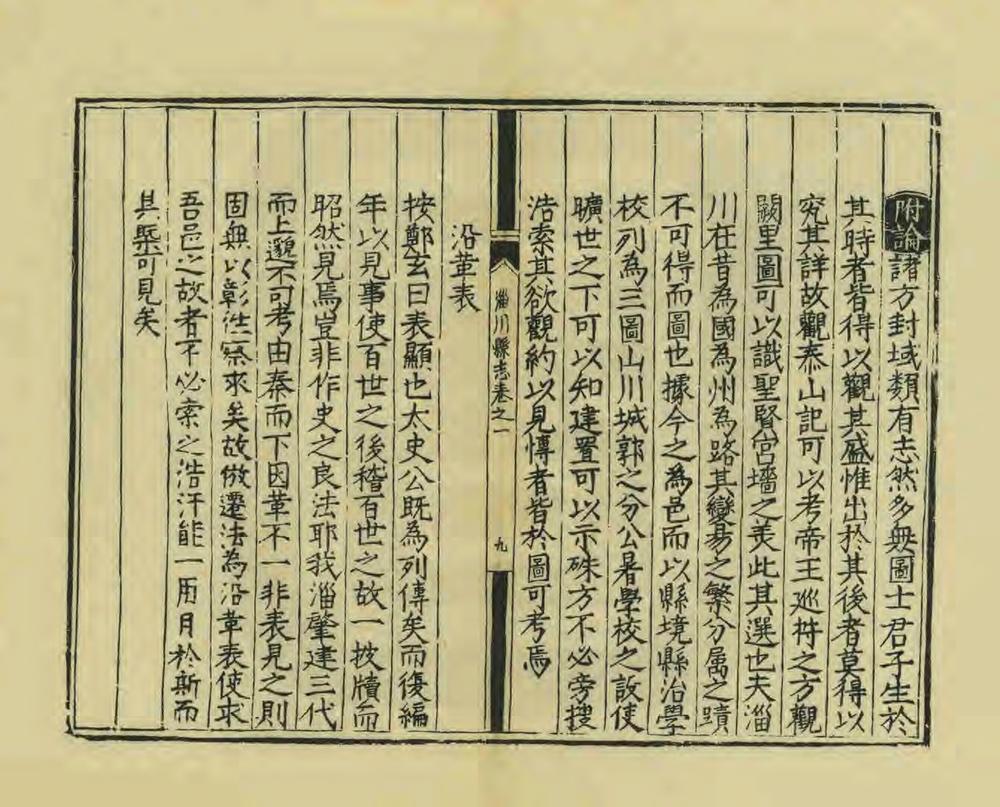 附論諸方封域類有志然多無圖士君子生於
其時者皆得以觀其盛惟出於其後者莫得以
究其詳故觀泰山記可以考帝王巡狩之方觀
闕里圖可以識聖賢宮墻之美此其選也夫淄
川在昔為國為州為路其變易之繁分属之蹟
不可得而圖也據今之為邑而以縣境縣治學
校列為三圖山川城郭之分公署學校之設使
曠世之下可以知建置可以示殊方不必旁搜
浩索其欲觀約以見慱者皆於圖可考焉
淄川縣志卷之一
九
沿革表
按鄭玄曰表顯也太史公既為列傳矣而復編
年以見事使百世之後稽百世之故一披牘而
昭然見焉豈非作史之良法耶我淄肇建三代
而上邈不可考由秦而下因革不一非表見之則
固無以彰徃察來矣故倣遷法為沿革表使求
吾邑之故者不必索之浩汗能一用月於斯而
其槩可見矣